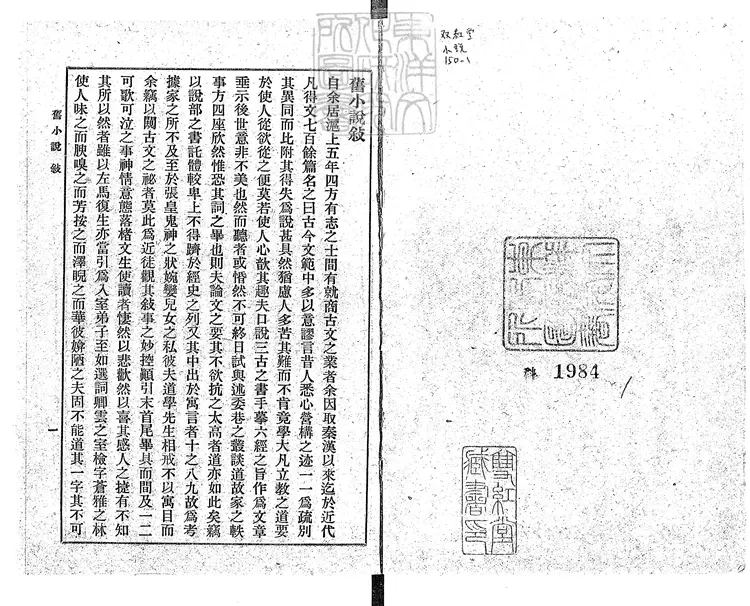 双紅堂
小説
150-1
1984
雙紅堂
藏書印
舊小說敍
自余居滬上五年四方有志之士間有就商古文之業者余因取秦漢以來迄於近代
凡得文七百餘篇名之曰古今文範中多以意謬言昔人悉心營構之迹一一爲疏別
其異同而比附其得失爲說甚具然猶慮人多苦其難而不肯竟學大凡立敎之道要
於使人從欲從之便莫若使人心歆其趣夫口說三古之書手摹六經之旨作爲文章
垂示後世意非不美也然而聽者或惛然不可終日試與述委巷之叢談道故家之軼
事方四座欣然惟恐其詞之畢也則夫論文之要其不欲抗之太高者道亦如此矣竊
以說部之書託體較卑上不得躋於經史之列又其中出於寓言者十之八九故爲考
據家之所不及至於張皇鬼神之狀婉孌兒女之私彼夫道學先生相戒不以寓目而
余竊以闚古文之祕者莫此爲近徒觀其敍事之妙控顚引末首尾畢具而間及一二
可歌可泣之事神情意態落楮文生使讀者悽然以悲歡然以喜其感人之捷有不知
其所以然者雖以左馬復生亦當引爲入室弟子至如選詞卿雲之室檢字蒼雅之林
使人味之而腴嗅之而芳接之而澤睨之而華彼媕陋之夫固不能道其一字其不可
舊小說 敍
一